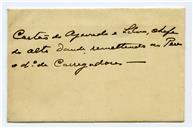 Cartão de Azevedo e Silva, chefe
do alto Dande, remettendo ao Pera
o d.º de Carregadores —